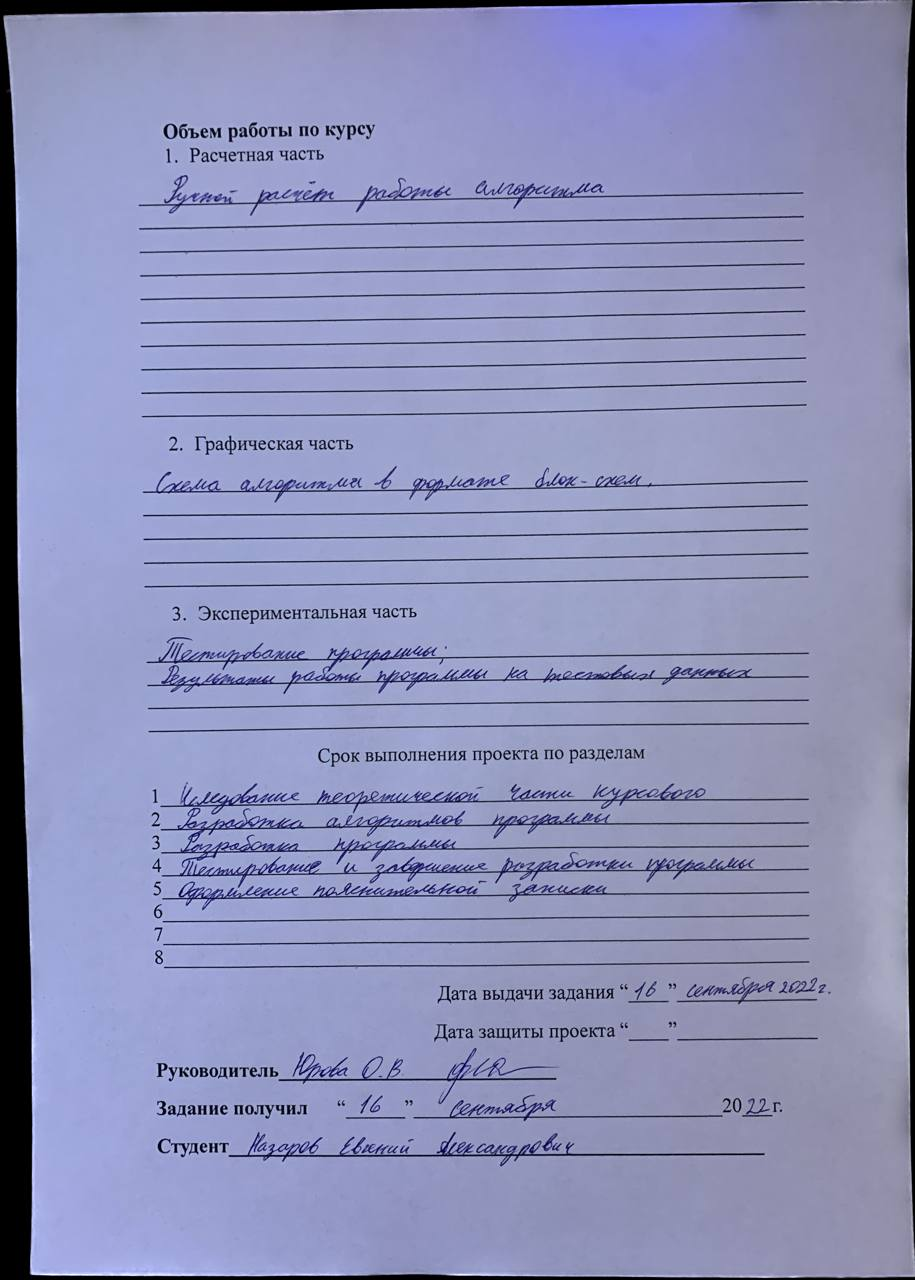 Объем работы по курсу
1. Расчетная часть
Ручной расчёт работы алгоритма
2. Графическая часть
Схема алгоритма в формате блок-схем.
3. Экспериментальная часть
Тестирование программы;
Результаты работы программы на тестовых данных
Срок выполнения проекта по разделам
1 Иследование теоретической части курсового
2 Разработка алгоритмов программы
3 Разработка программы
4 Тестирование и завершение разработки программы
5 Оформление пояснительной записки
6
7
8
Дата выдачи задания “16” сентября 2022 г.
Дата защиты проекта “___”
Руководитель Юрова О.В.
Задание получил “16” сентября 2022 г.
Студент Назаров Евгений Александрович